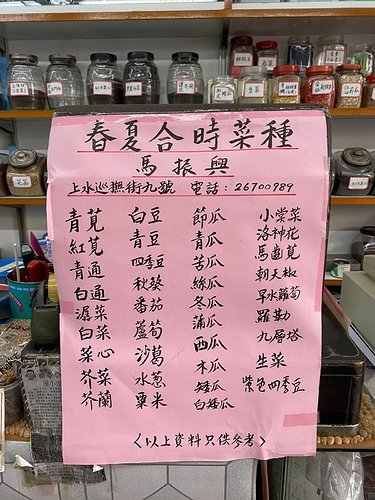 春夏合時菜種
馬振興
上水巡撫街九號 電話：26700989
青莧 白豆 節瓜 小棠菜
紅莧 青豆 青瓜 洛神花
青通 四季豆 苦瓜 馬齒莧
白通 秋葵 絲瓜 朝天椒
潺菜 番茄 冬瓜 早水蘿蔔
白菜 蘆筍 蒲瓜 羅勒
菜心 沙葛 西瓜 九層塔
芥菜 水蔥 木瓜 生菜
芥蘭 粟米 矮瓜 紫色四季豆
白矮瓜
＜以上資料只供參考＞
生菜